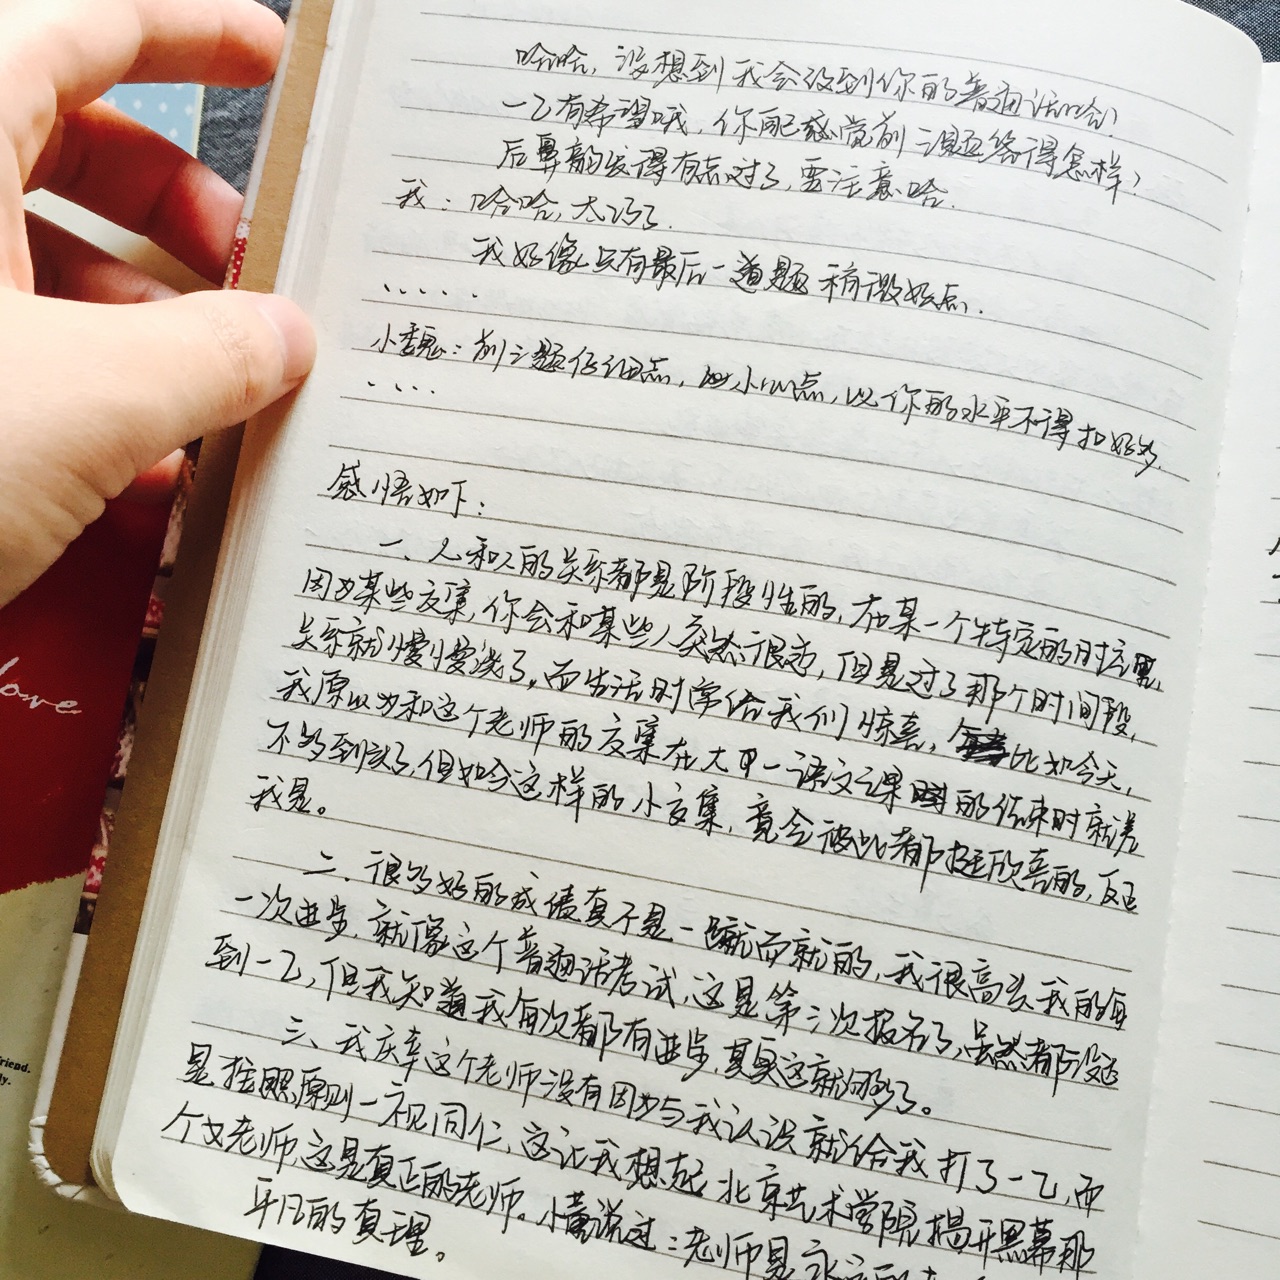 哈哈,没想到我会改到你的普通话哈!
一乙有希望哦,你自己感觉前三题答得怎样?
后鼻韵发得有点过了,要注意哈.
我:哈哈,太巧了.
我好像只有最后一道题稍微好点.
.....
小魏:前三题仔细点,小心点,以你的水平不得扣好多.
....
感悟如下:
一、人和人的关系都是阶段性的,在某一个特定的时空里,
因为某些交集,你会和某些人突然很近,但是过了那个时间段,
关系就慢慢淡了。而生活时常给我们惊喜,比如今天,
我原以为和这个老师的交集在大一语文课的结束时就差
不多到头了,但如今这样的小交集,竟会彼此都挺欣喜的,反正
我是。
二、很多好的成绩真不是一蹴而就的,我很高兴我的每
一次进步,就像这个普通话考试,这是第三次报名了,虽然都没达
到一乙,但我知道我每次都有进步,其实这就够了。
三、我庆幸这个老师没有因为与我认识就给我打了一乙,而
是按照原则一视同仁,这让我想起北京艺术学院揭开黑幕那
个女老师,这是真正的老师。小黄说过:老师是永远的
平凡的真理。
love
friend.
ly.